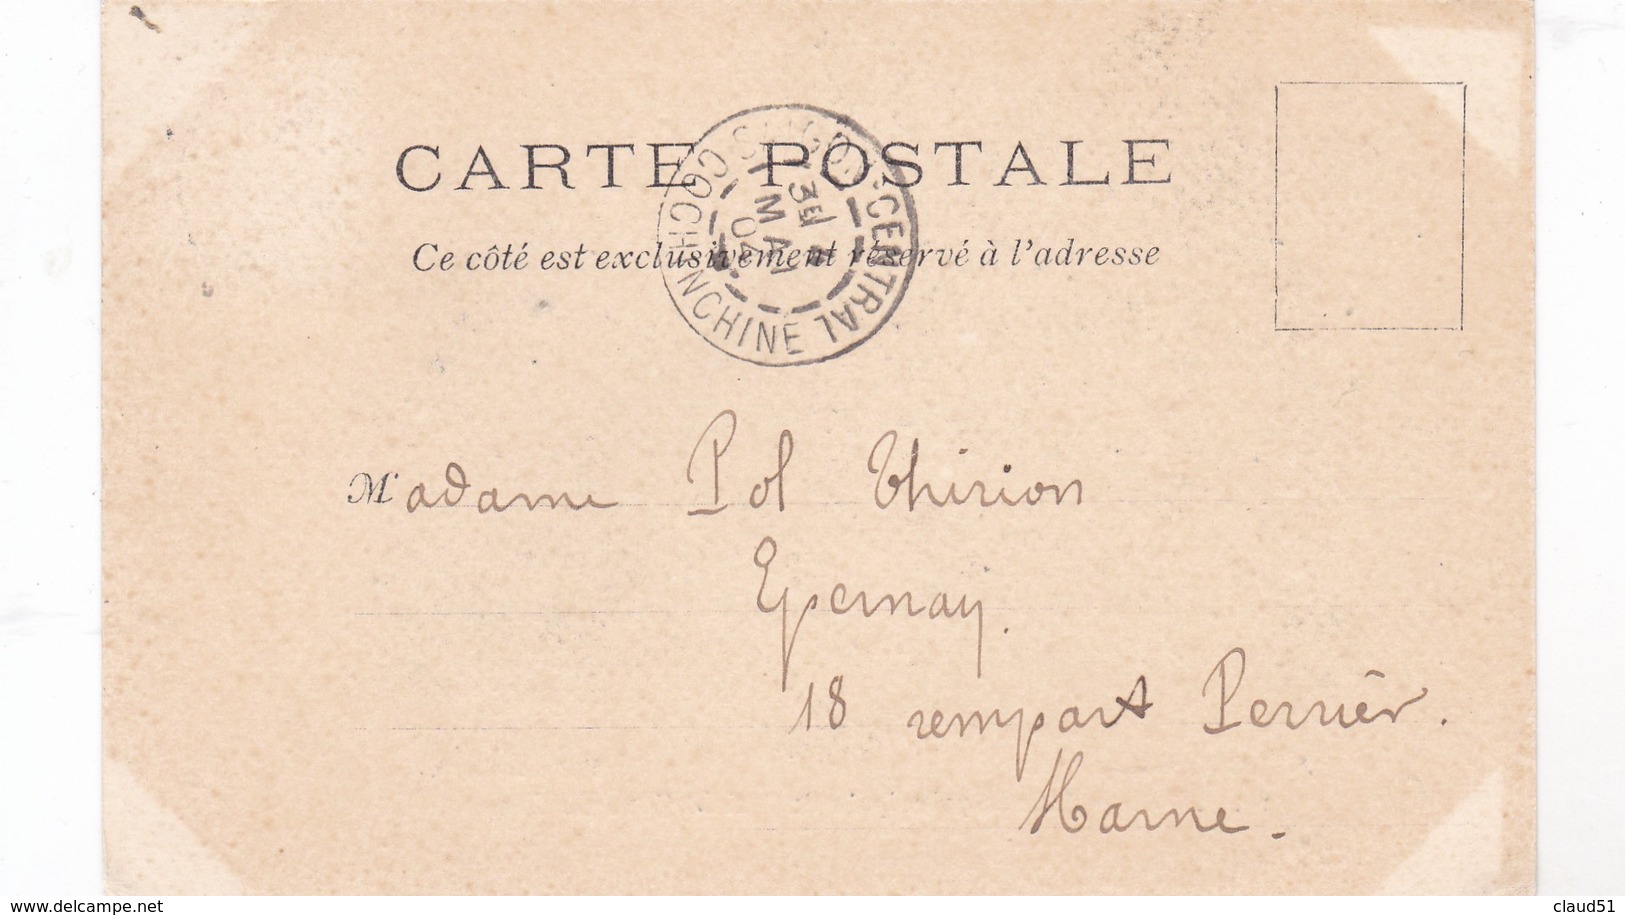 CARTE POSTALE
SAIGON-CENTRAL
3E
MAI
04
COCHINCHINE
Ce côté est exclusivement réservé à l'adresse
Madame Pol Thirion
Epernay.
18 rempart Perrier.
Marne.
www.delcampe.net
claud51